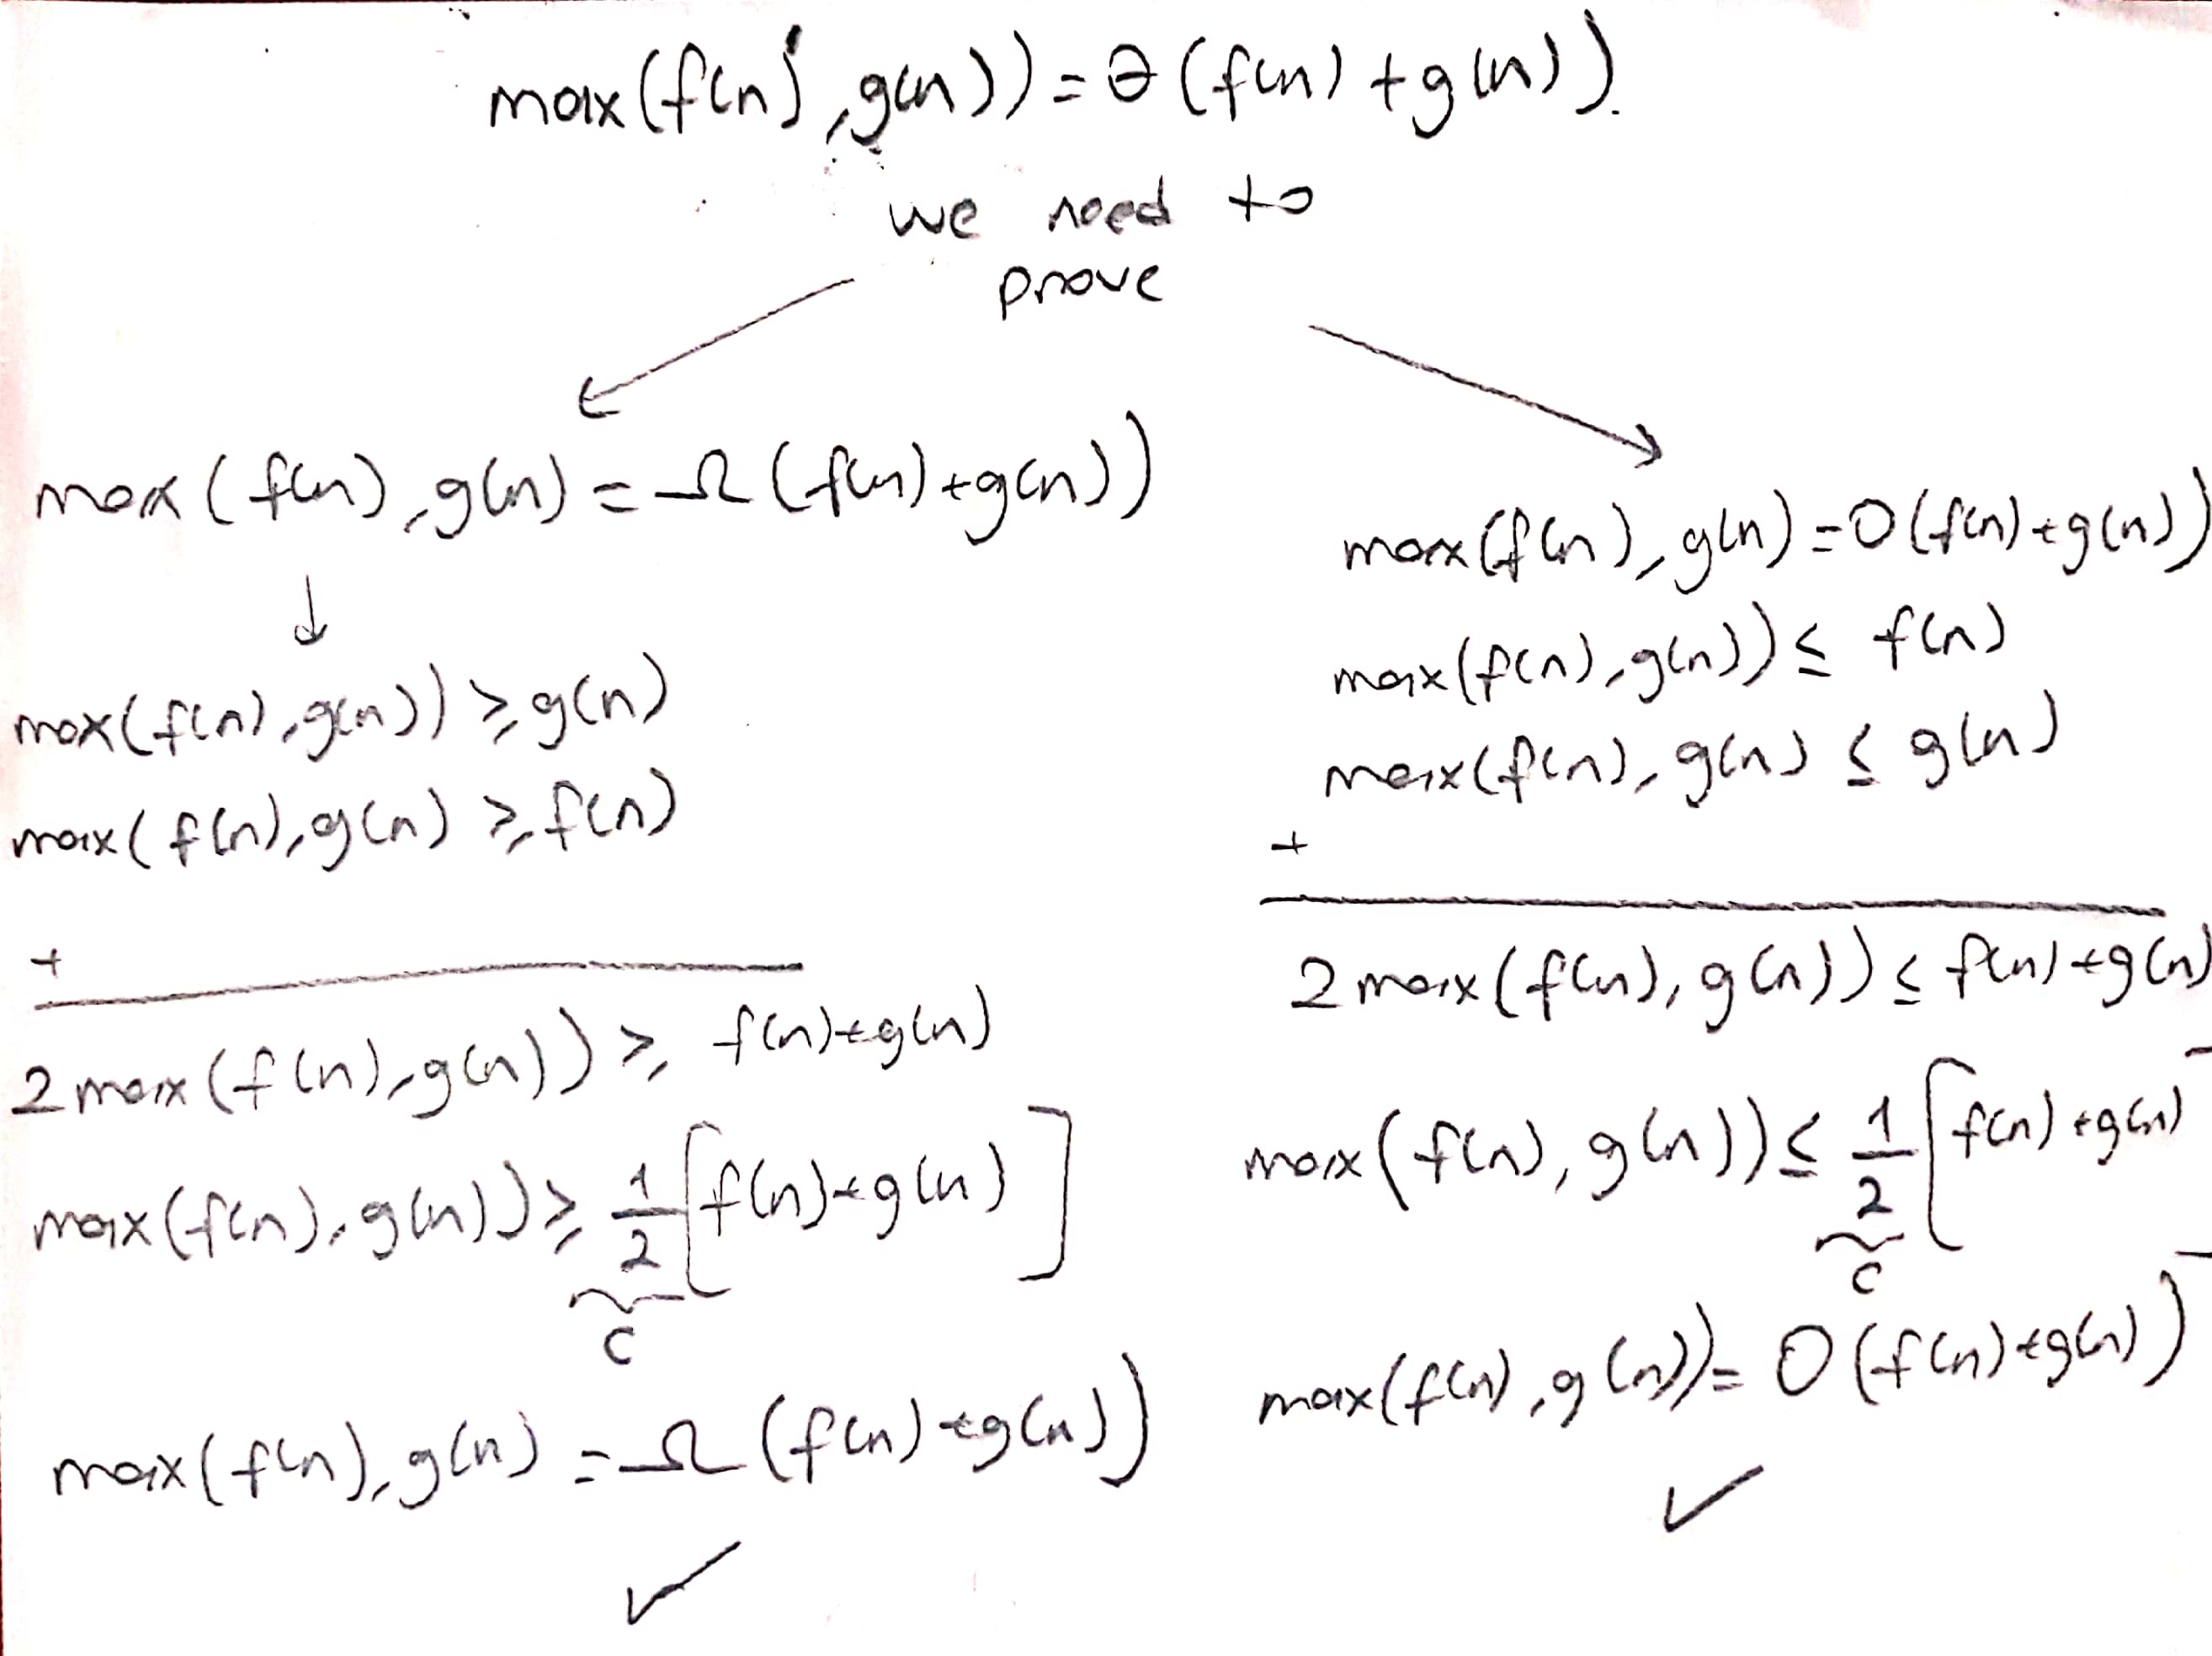 max(f(n), g(n)) = θ(f(n) + g(n)).
we need to
prove
max(f(n), g(n) = Ω(f(n) + g(n))
↓
max(f(n), g(n)) ≥ g(n)
max(f(n), g(n) ≥ f(n)
+
2 max(f(n), g(n)) ≥ f(n) + g(n)
max(f(n), g(n)) ≥ 1/2 [f(n) + g(n)]
c
max(f(n), g(n) = Ω(f(n) + g(n))
✓
max(f(n), g(n) = O(f(n) + g(n))
max(f(n), g(n)) ≤ f(n)
max(f(n), g(n) ≤ g(n)
+
2 max(f(n), g(n)) ≤ f(n) + g(n)
max(f(n), g(n)) ≤ 1/2 [f(n) + g(n)]
c
max(f(n), g(n)) = O(f(n) + g(n))
✓